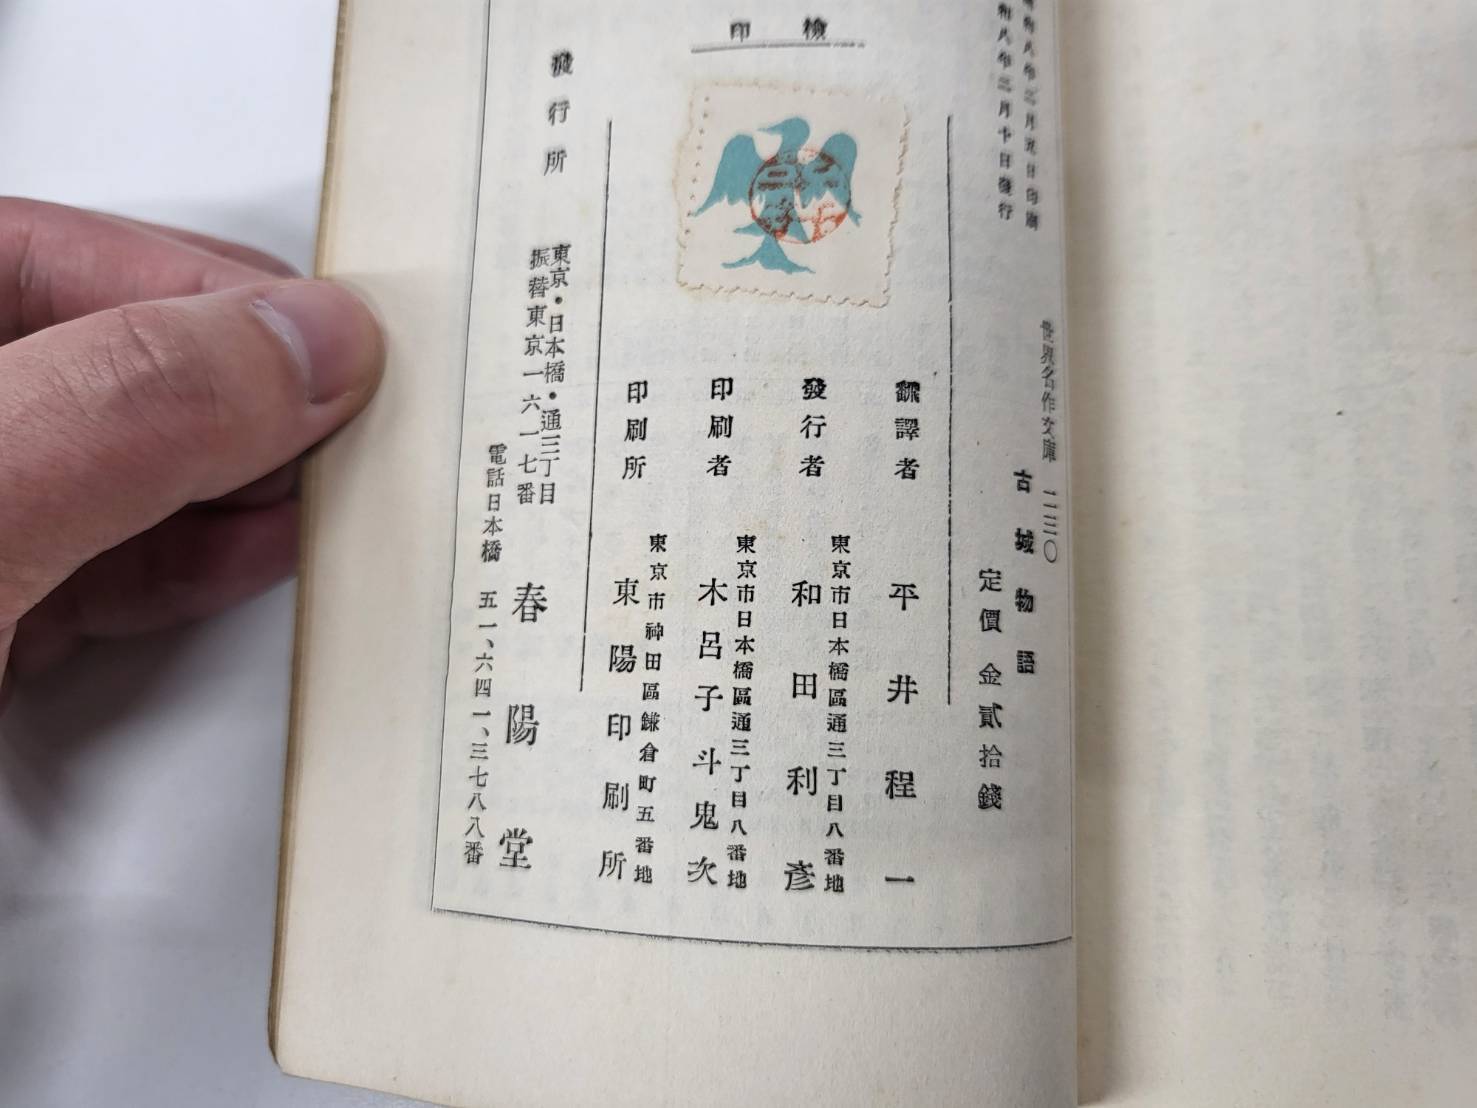 和八年二月五日印刷
和八年二月十日發行
世界名作文庫 二三〇
古城物語
定價 金貳拾錢
檢印
飜譯者 平井程一
發行者 東京市日本橋區通三丁目八番地
和田利彥
印刷者 東京市日本橋區通三丁目八番地
木呂子斗鬼次
印刷所 東京市神田區鎌倉町五番地
東陽印刷所
發行所 東京・日本橋・通三丁目
振替東京一六一七番
春陽堂
電話日本橋 五一、六四一、三七八八番